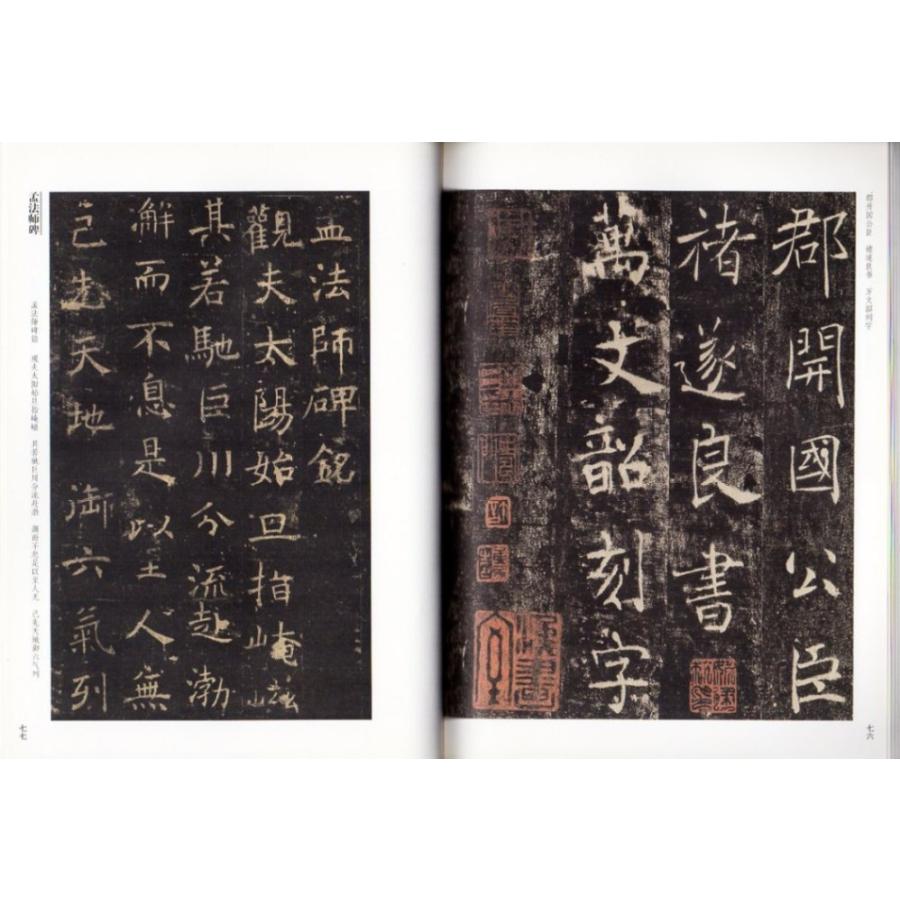 郡开国公臣 褚遂良书 万文韶刻字
七六
郡開國公臣
褚遂良書
萬文韶刻字
孟法師碑銘
觀夫太陽始旦指崦嵫
其若馳巨川分流赴渤
澥而不息是以至人無
己先天地御六氣列
孟法师碑
孟法师碑铭 观夫太阳始旦指崦嵫 其若驰巨川分流赴渤 澥而不息是以至人无 己先天地御六气列
七七